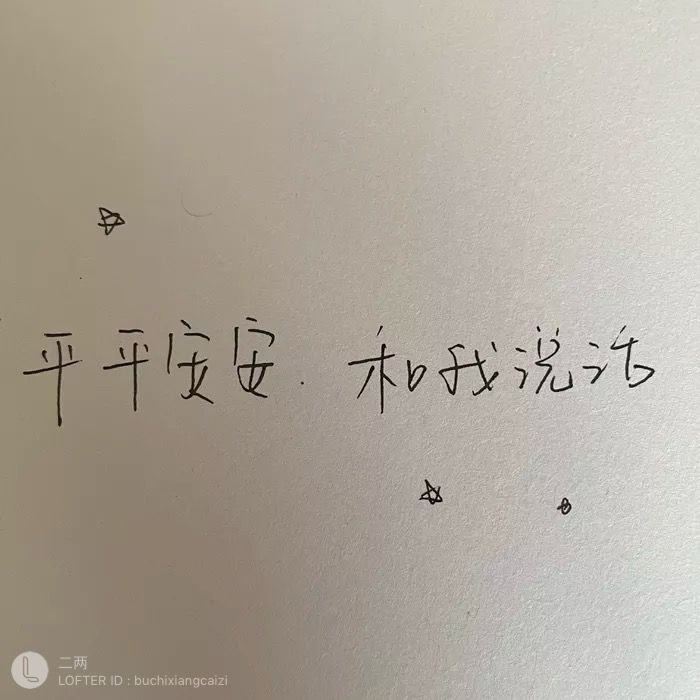 平平安安. 和我说话
二两
LOFTER ID : buchixiangcaizi